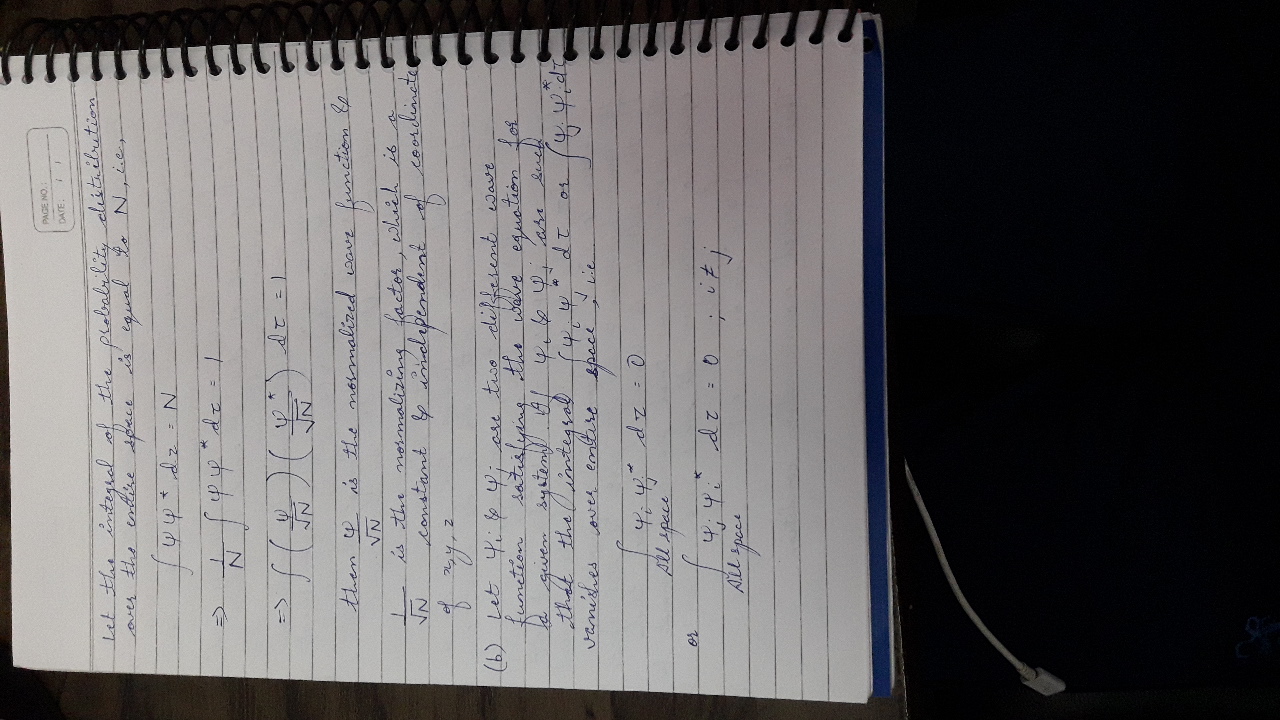 PAGE NO.:
DATE: / /
Let the integral of the probability distribution
over the entire space is equal to N, i.e,
∫ ψψ* dz = N
=> 1/N ∫ ψψ* dτ = 1
=> ∫ (ψ/√N) (ψ*/√N) dτ = 1
then ψ/√N is the normalized wave function &
1/√N is the normalizing factor, which is a
constant & independent of coordinate
of x,y,z
(b) Let ψi & ψj are two different wave
function satisfying the wave equation for
a given system. If ψi & ψj are such
that the integral ∫ψi ψj* dτ or ∫ψj ψi* dτ
vanishes over entire space, i.e
∫ ψi ψj* dτ = 0
All space
or
∫ ψj ψi* dτ = 0 ; i≠j
All space